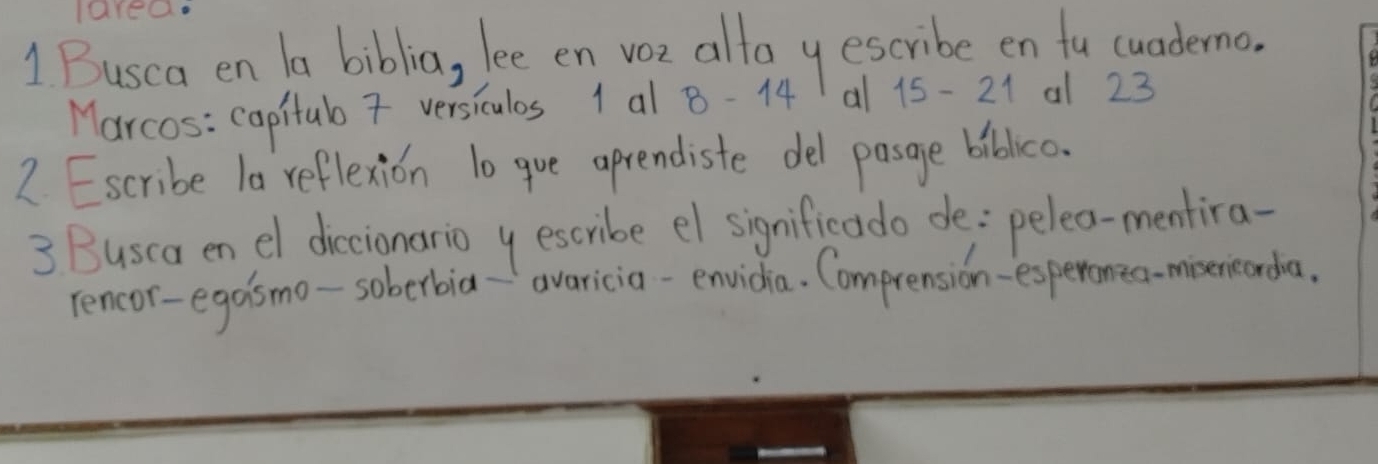 Tarea:
1. Busca en la biblia, lee en voz alta y escribe en tu cuaderno.
Marcos: capítulo 7 versículos 1 al 8 - 14 al 15 - 21 al 23
2. Escribe la reflexión lo que aprendiste del pasaje bíblico.
3. Busca en el diccionario y escribe el significado de: pelea-mentira-
rencor-egoísmo-soberbia-avaricia-envidia. Comprensión-esperanza-misericordia.